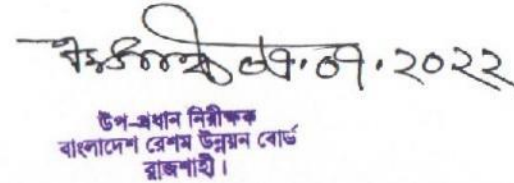 ০৭.০৭.২০২২
উপ-প্রধান নিরীক্ষক
বাংলাদেশ রেশম উন্নয়ন বোর্ড
রাজশাহী।